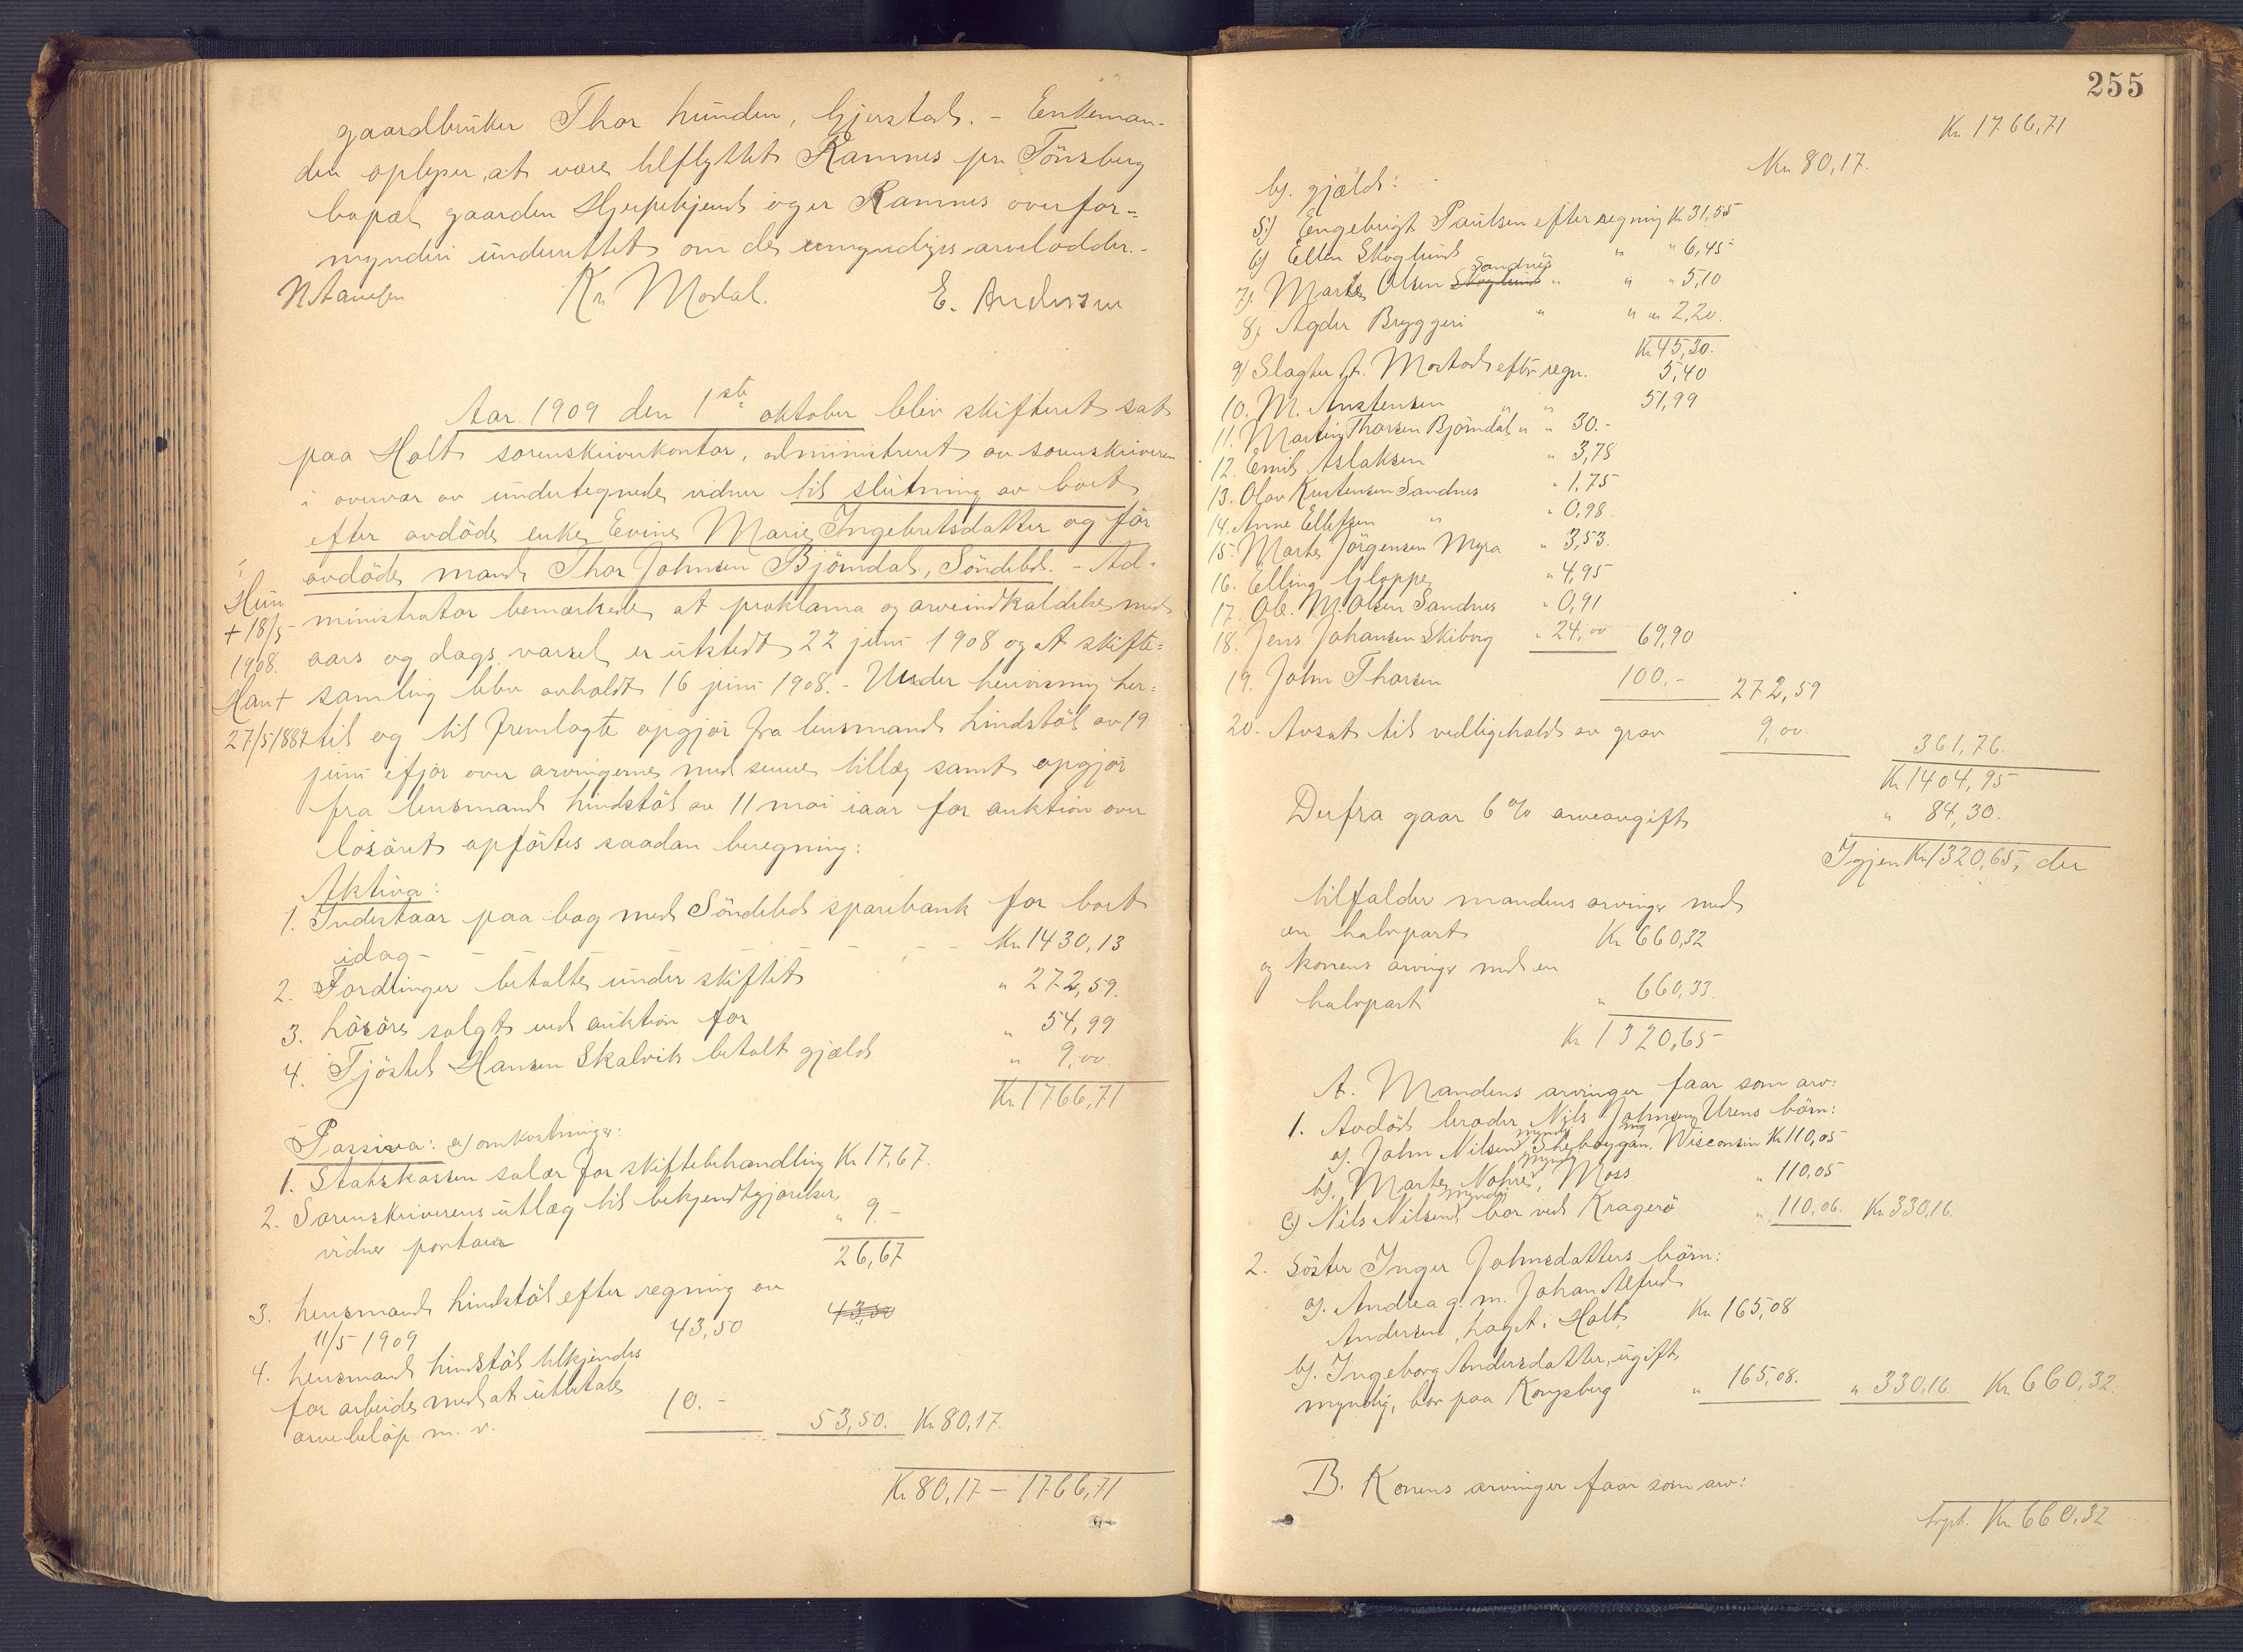 gaardbruker Thor Lunden, Gjerstad. - Enkeman-
den oplyser, at være tilflyttet Ramnes pr Tönsberg
bopæl gaarden Hjerpekjend og er Ramnes overfor-
mynderi underrettet om de umyndiges arvelodder.-
N. Hansen Kr. Modal. E. Andersen
Aar 1909 den 1ste oktober blev skifteret sat
paa Holt sorenskriverkontor, administreret av sorenskriveren
i overvær av undertegnede vidner til slutning av boet
efter avdöde enke Evine Marie Ingebretsdatter og för
avdöde mand Thor Johnsen Björndal, Söndeled. - Ad-
ministrator bemærkede, at proklama og arveindkaldelse med
aars og dags varsel er utstedt 22 juni 1908 og at skifte=
samling blev avholdt 16 juni 1908. - Under henvisning her=
til og til fremlagte opgjör fra lensmand Lindstöl av 19
juni ifjor over arvingerne med senere tillæg samt opgjör
fra lensmand Lindstöl av 11 mai iaar for auktion over
lösöret opförtes saadan beregning:
Hun
+ 18/5
1908.
Han +
27/5/1887
Aktiva:
1. Indestaar paa bog med Söndeled sparebank for boet
idag - - - - - - - Kr. 1430,13
2. Fordringer betalte under skiftet " 272,59.
3. Lösöre solgt ved auktion for " 54,99
4. Tjöstel Hansen Skalvik betalt gjæld " 9,00.
Kr. 1766,71
Passiva: a) omkostninger:
1. Statskassen salær for skiftebehandling Kr. 17,67.
2. Sorenskriverens utlæg til bekjendtgjörelser,
vidner portoer " 9.-
26,67
3. Lensmand Lindstöl efter regning av
11/5 1909 43,50 43,50
4. Lensmand Lindstöl tilkjendes
for arbeide med at utbetale
arvebelöp m. v. 10.- 53,50. Kr. 80,17.
Kr. 80,17 - 1766,71
255
Kr. 1766,71
Kr. 80,17.
b). gjæld:
5) Engebrigt Paulsen efter regning Kr. 31,55
6) Ellen Skoglund " " 6,45
7). Marte Olsen Skoglund Sandnes " " " 5,10
8). Agder Bryggeri " " " 2,20.
Kr. 45,30.
9) Slagter A. Mostad efter regn. 5,40
10. M. Anstensen " " 51,99
11. Martin Thorsen Björndal " " 30.-
12. Emil Aslaksen " 3,78
13. Olav Kristensen Sandnes " 1,75
14. Anne Ellefsen " " 0,98.
15. Marte Jörgensen Myra " 3,53.
16. Elling Gloppe " 4,95
17. Ole. M. Olsen Sandnes " 0,91
18. Jens Johansen Skibvig " 24,00 69,90
19. John Thorsen 100.- 272,59
20. Avsat til vedligehold av grav 9,00. 361,76.
Kr. 1404,95
Derfra gaar 6 % arveavgift " 84,30.
Igjen Kr. 1320,65, der
tilfalder mandens arvinger med
en halvpart Kr. 660,32
og konens arvinger med en
halvpart " 660,33.
Kr. 1320,65
A. Mandens arvinger faar som arv:
1. Avdöd broder Nils Johnsen Urens börn:
a). John Nilsen, myndig Sheboygan, Wisconsin Kr. 110,05
b). Marte Nohre, myndig Moss " 110,05
c) Nils Nilsen, myndig bor ved Kragerö " 110,06. Kr. 330,16.
2. Söster Inger Johnsdatters börn:
a). Andrea g. m. Johan Alfred
Andersen, Laget i Holt Kr. 165,08
b). Ingeborg Andersdatter, ugift,
myndig, bor paa Kongsberg " 165,08. " 330,16. Kr. 660,32.
B. Konens arvinger faar som arv:
Trpt. Kr. 660,32